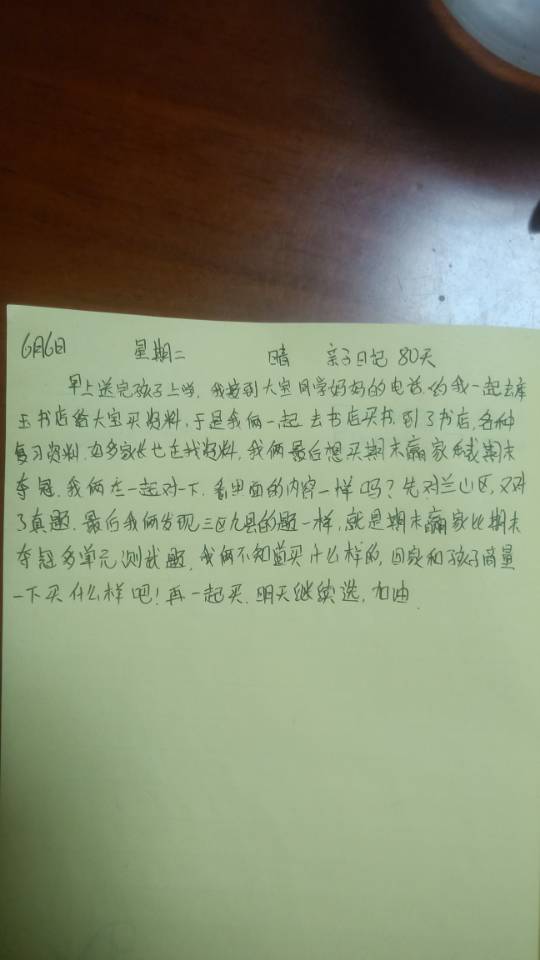 6月6日 星期二 晴 亲子日记 80天
早上送完孩子上学,我接到大宝同学妈妈的电话,约我一起去库
玉书店给大宝买资料,于是我俩一起去书店买书,到了书店,各种
复习资料,好多家长也在找资料,我俩最后想买期末赢家或期末
夺冠,我俩在一起对一下,看里面的内容一样吗?先对兰山区,又对
了真题,最后我俩发现三区九县的题一样,就是期末赢家比期末
夺冠多单元测试题,我俩不知道买什么样的,回家和孩子商量
一下买什么样吧!再一起买,明天继续选,加油